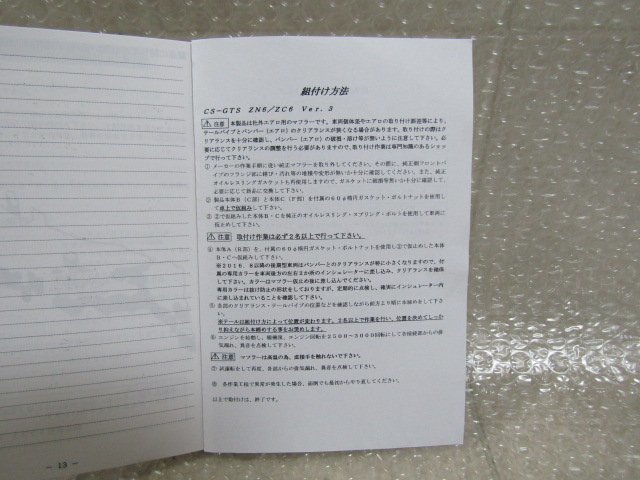 組付け方法
CS-GTS ZN6／ZC6 Ver. 3
⚠注意 本製品は社外エアロ用のマフラーです。車両個体差やエアロの取り付け誤差等により、
テールパイプとバンパー（エアロ）のクリアランスが狭くなる場合があります。取り付けの際はク
リアランスを十分に確認し、バンパー（エアロ）の破損・溶け等が無いように注意して下さい。必
要に応じてクリアランスの調整を行う必要がありますので、取り付け作業は専門知識のあるショッ
プで行って下さい。
① メーカーの作業手順に従い純正マフラーを取り外してください。その際に、純正側フロントパ
イプのフランジ部に錆び・汚れ等の堆積や変形が無いか十分に確認してください。また、純正
オイルレスリングガスケットも再使用しますので、ガスケットに破損等無いか十分に確認して、
必要に応じて新品に交換して下さい。
② 製品本体B（C部）と本体C（F部）を付属の60φ楕円ガスケット・ボルトナットを使用し
て卓上で仮組み して下さい。
③ ②で仮組みした本体B・Cを純正のオイルレスリング・スプリング・ボルトを使用して車両に
仮止めして下さい。
⚠注意 取付け作業は必ず2名以上で行って下さい。
④ 本体A（B部）を、付属の60φ楕円ガスケット・ボルトナットを使用し③で仮止めした本体
B・Cへ仮組みして下さい。
※2016．8以降の後期型車両はバンパーとのクリアランスが特に小さくなりますので、付
属の専用カラーを車両後方の左右2か所のインシュレーターに差し込み、クリアランスを確保
して下さい。カラーはマフラー仮止めの後に差し込んでください。
専用カラーは抜け防止の形状をしておりますが、定期的に点検し、確実にインシュレーター内
に差し込まれていることを確認して下さい。
⑤ 各部のクリアランス・テールパイプの位置などを確認しながら前方より順に本締めをして下さ
い。
※テールは組付け方によって位置が変わります。2名以上で作業を行い、位置を決めてしっか
り抑えながら本締めする事をお奨めします。
⑥ エンジンを始動し、暖機後、エンジン回転を2500～3000回転にして各接続部からの排
気漏れ、異音を点検して下さい。
⚠注意 マフラーは高温の為、直接手を触れないで下さい。
⑦ 試運転をして再度、各部からの排気漏れ、異音を点検して下さい。
⑧ 各作業工程で異常が発生した場合、面倒でも最初からやり直してください。
以上で取付けは、終了です。
－ 13 －